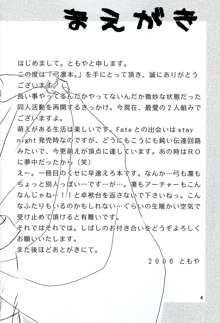 まえがき
はじめまして。ともやと申します。
この度は「弓凛本。」を手にとって頂き、誠にありがとう
ございます。
長い事やってるんだかやってないんだか微妙な状態だった
同人活動を再開するきっかけ。今現在、最愛の2人組みで
す。
萌えがある生活は楽しいです。Fateとの出会いはstay
night発売時なのですが、どうにもこうにも鈍い伝達回路で
巡り巡って、今更萌えが頂点に達しています。あの時はRO
に夢中だったから（笑）
えー。一冊目のくせに早速言える本です。なんか…弓も凛
もちょっと別人っぽい…ですが…。凛もアーチャーもこん
なんじゃねー！！と卓袱台を返さないで下さい…。こん
なふたりもいるのかもしれない…くらいの生暖かい空気で
受け止めて頂けると有難いです。
それではそれでは。しばしのお付き合いをどうぞよろしく
お願い致します。
また後ほどあとがきにて。
2006 ともや
4